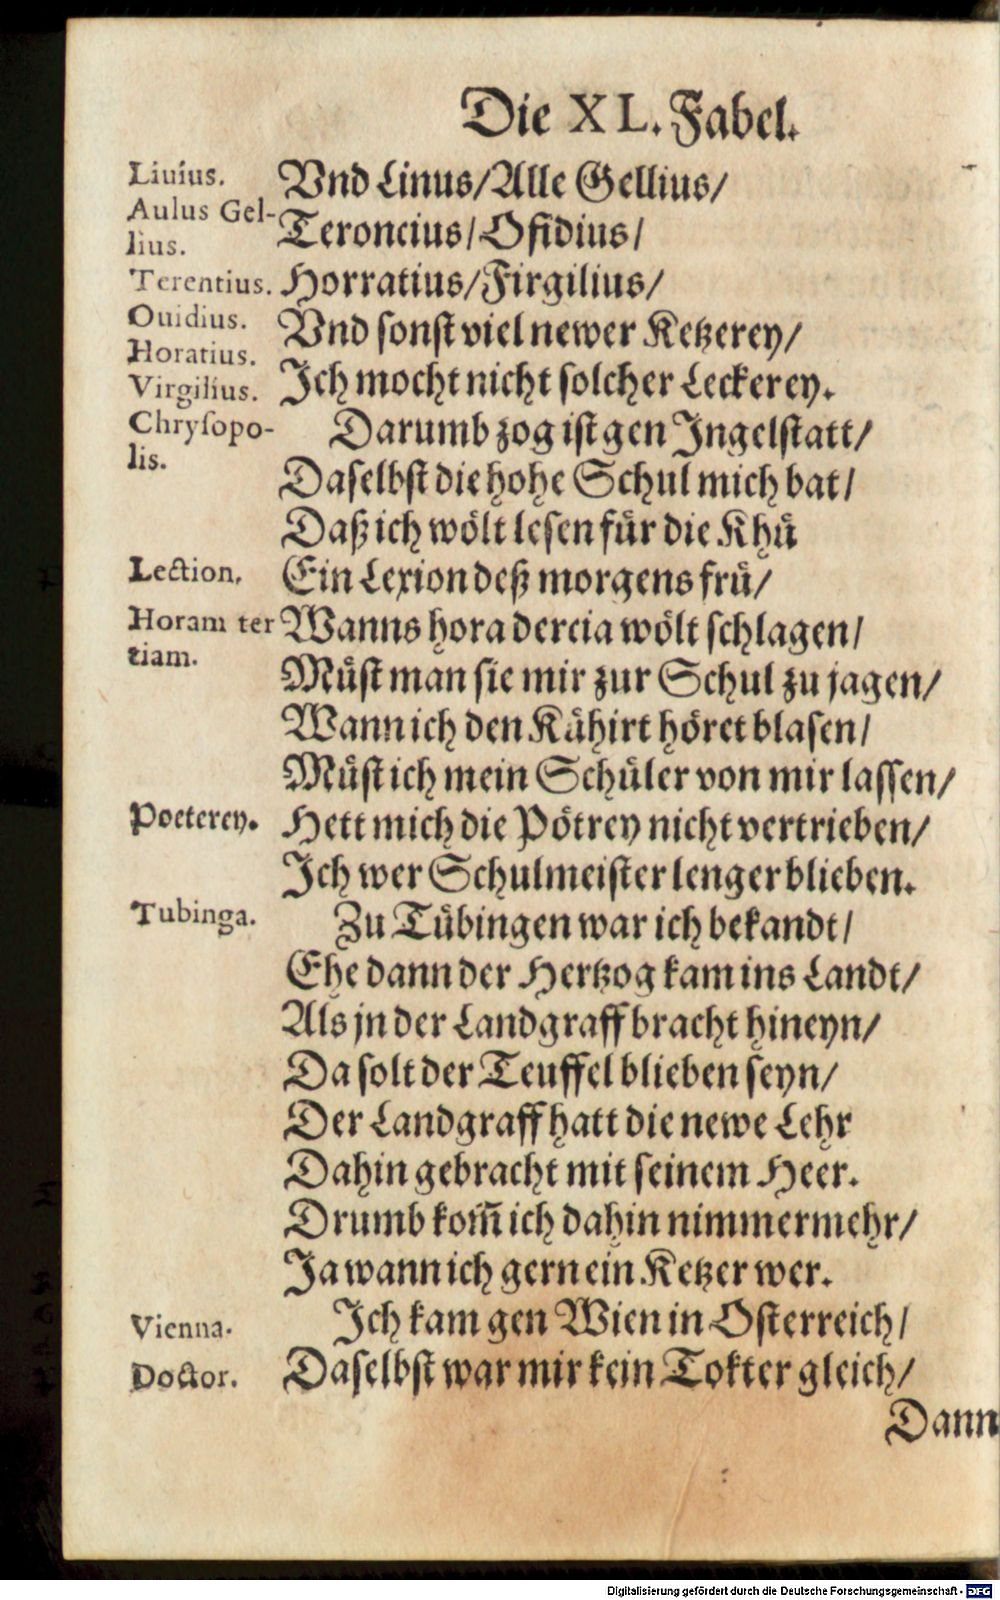 Die XL. Fabel.
Liuius.
Aulus Gel-
lius.
Terentius.
Ouidius.
Horatius.
Virgilius.
Chrysopo-
lis.
Lection.
Horam ter
tiam.
Poeterey.
Tubinga.
Vienna.
Doctor.
Vnd Linus/Alle Gellius/
Teroncius/Ofidius/
Horratius/Firgilius/
Vnd sonst viel newer Ketzerey/
Jch mocht nicht solcher Leckerey.
Darumb zog ist gen Jngelstatt/
Daselbst die hohe Schul mich bat/
Daß ich woͤlt lesen fuͤr die Khuͤ
Ein Lexion deß morgens fruͤ/
Wanns hora dercia woͤlt schlagen/
Muͤst man sie mir zur Schul zu jagen/
Wann ich den Kuͤhirt hoͤret blasen/
Muͤst ich mein Schuͤler von mir lassen/
Hett mich die Poͤtrey nicht vertrieben/
Jch wer Schulmeister lenger blieben.
Zu Tuͤbingen war ich bekandt/
Ehe dann der Hertzog kam ins Landt/
Als jn der Landgraff bracht hineyn/
Da solt der Teuffel blieben seyn/
Der Landgraff hatt die newe Lehr
Dahin gebracht mit seinem Heer.
Drumb kom̃ ich dahin nimmermehr/
Ja wann ich gern ein Ketzer wer.
Jch kam gen Wien in Osterreich/
Daselbst war mir kein Tokter gleich/
Dann
Digitalisierung gefördert durch die Deutsche Forschungsgemeinschaft - DFG